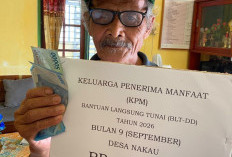 KELUARGA PENERIMA MANFAAT
(KPM)
BANTUAN LANGSUNG TUNAI (BLT-DD)
TAHUN 2026
BULAN 9 (SEPTEMBER)
DESA NAKAU